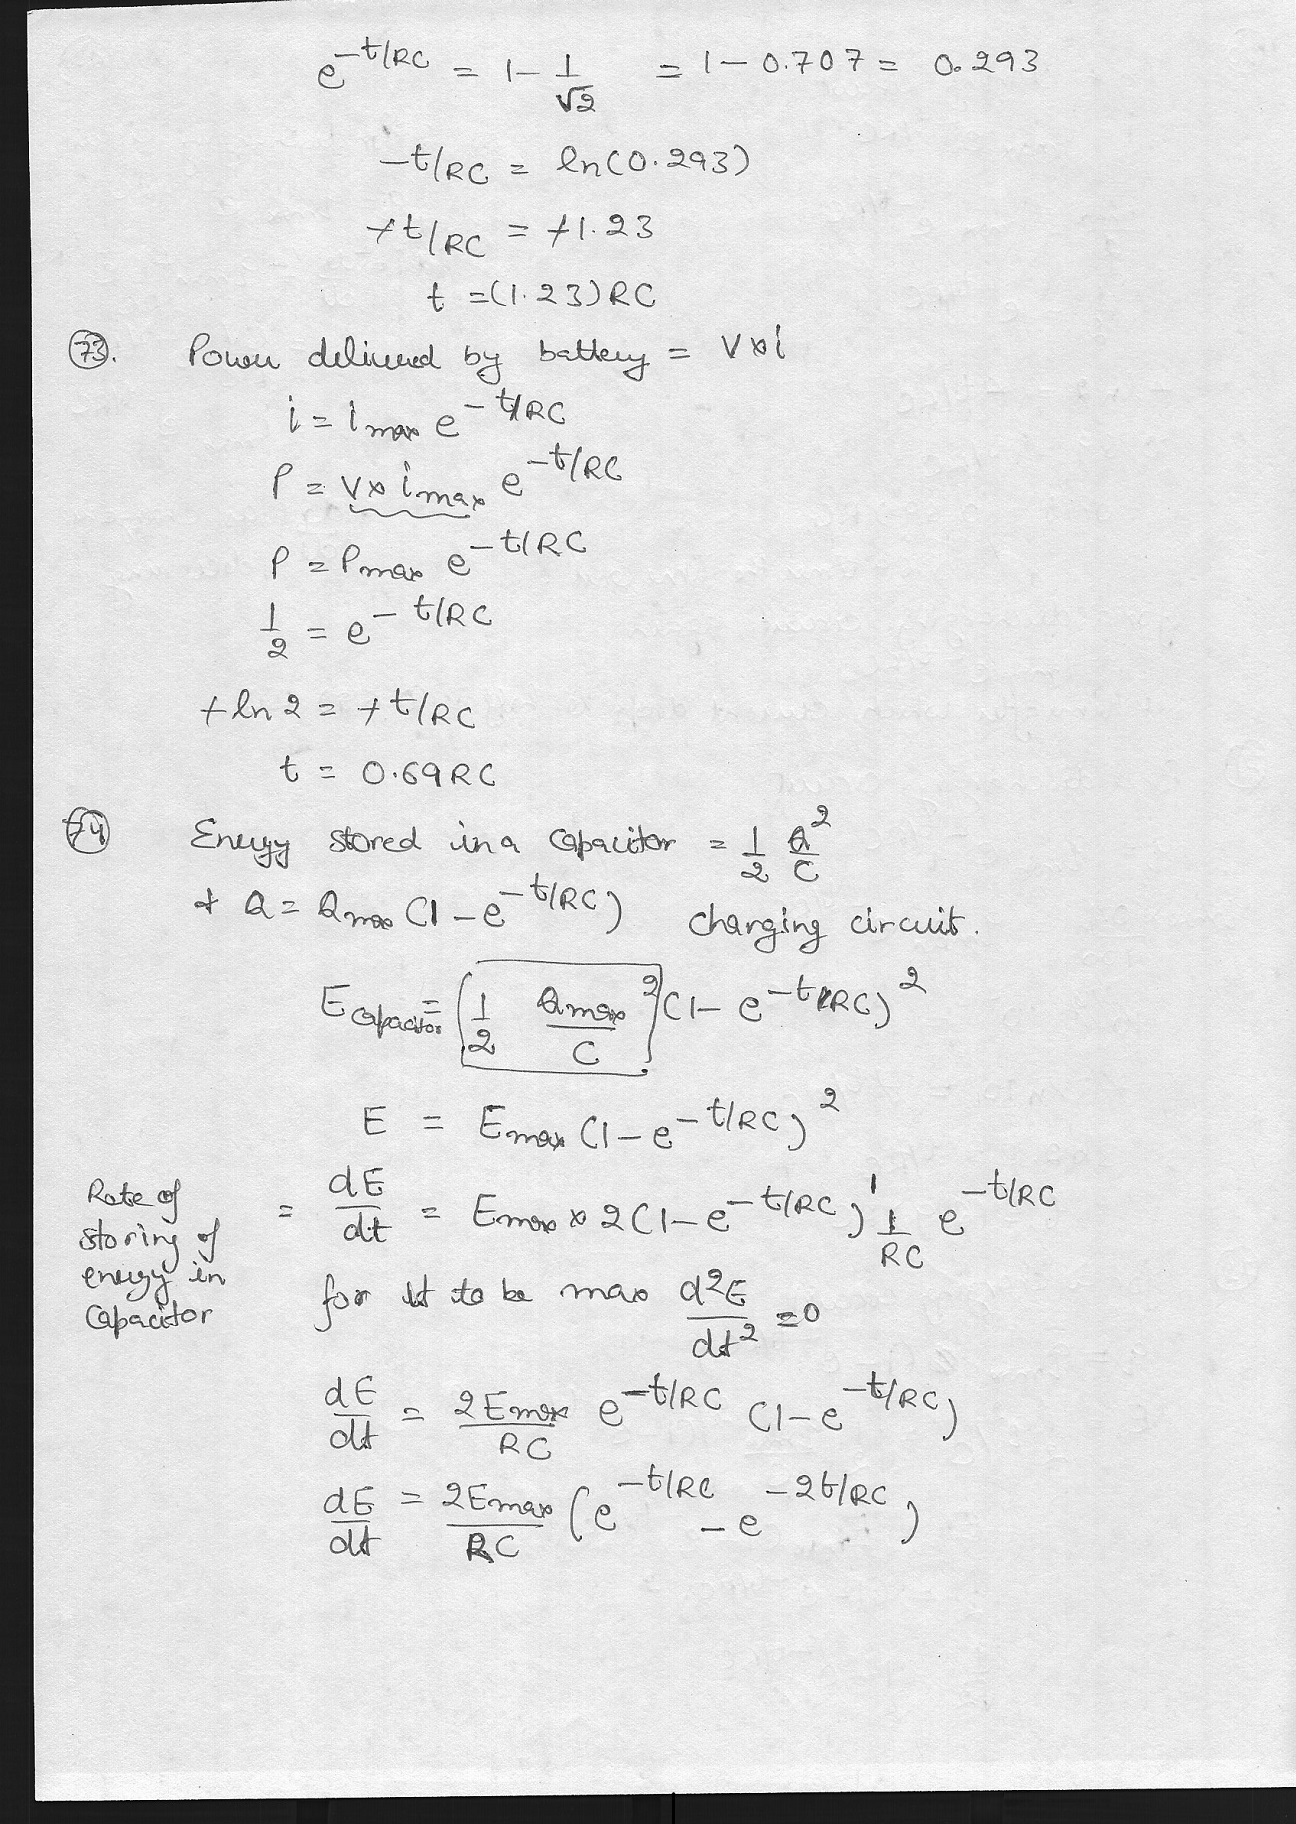 e^{-t/RC} = 1 - 1/√2 = 1 - 0.707 = 0.293
-t/RC = ln(0.293)
+t/RC = +1.23
t = (1.23)RC
73. Power delivered by battery = V×i
i = i_max e^{-t/RC}
P = V×i_max e^{-t/RC}
P = P_max e^{-t/RC}
1/2 = e^{-t/RC}
+ln2 = +t/RC
t = 0.69RC
74 Energy stored in a capacitor = 1/2 Q²/C
& Q = Q_max (1-e^{-t/RC}) charging circuit.
E_capacitor = [1/2 Q_max²/C] (1-e^{-t/RC})²
E = E_max (1-e^{-t/RC})²
Rate of storing of energy in capacitor = dE/dt = E_max × 2(1-e^{-t/RC})^1 1/RC e^{-t/RC}
for it to be max d²E/dt² = 0
dE/dt = 2E_max/RC e^{-t/RC} (1-e^{-t/RC})
dE/dt = 2E_max/RC (e^{-t/RC} - e^{-2t/RC})